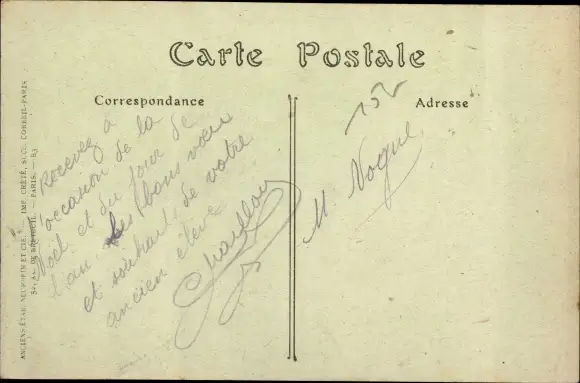 Carte Postale
Correspondance
Adresse
Recevez à
l'occasion de la
Noël et du jour de
l'an, les bons vœux
et souhaits de votre
ancien élève
M. Nogue
152
ANCIENS ÉTAB. NEURDEIN ET CIE. — IMP. CRÉTÉ, SUCC. CORBEIL-PARIS
52, AV. DE BRETEUIL. — PARIS. —